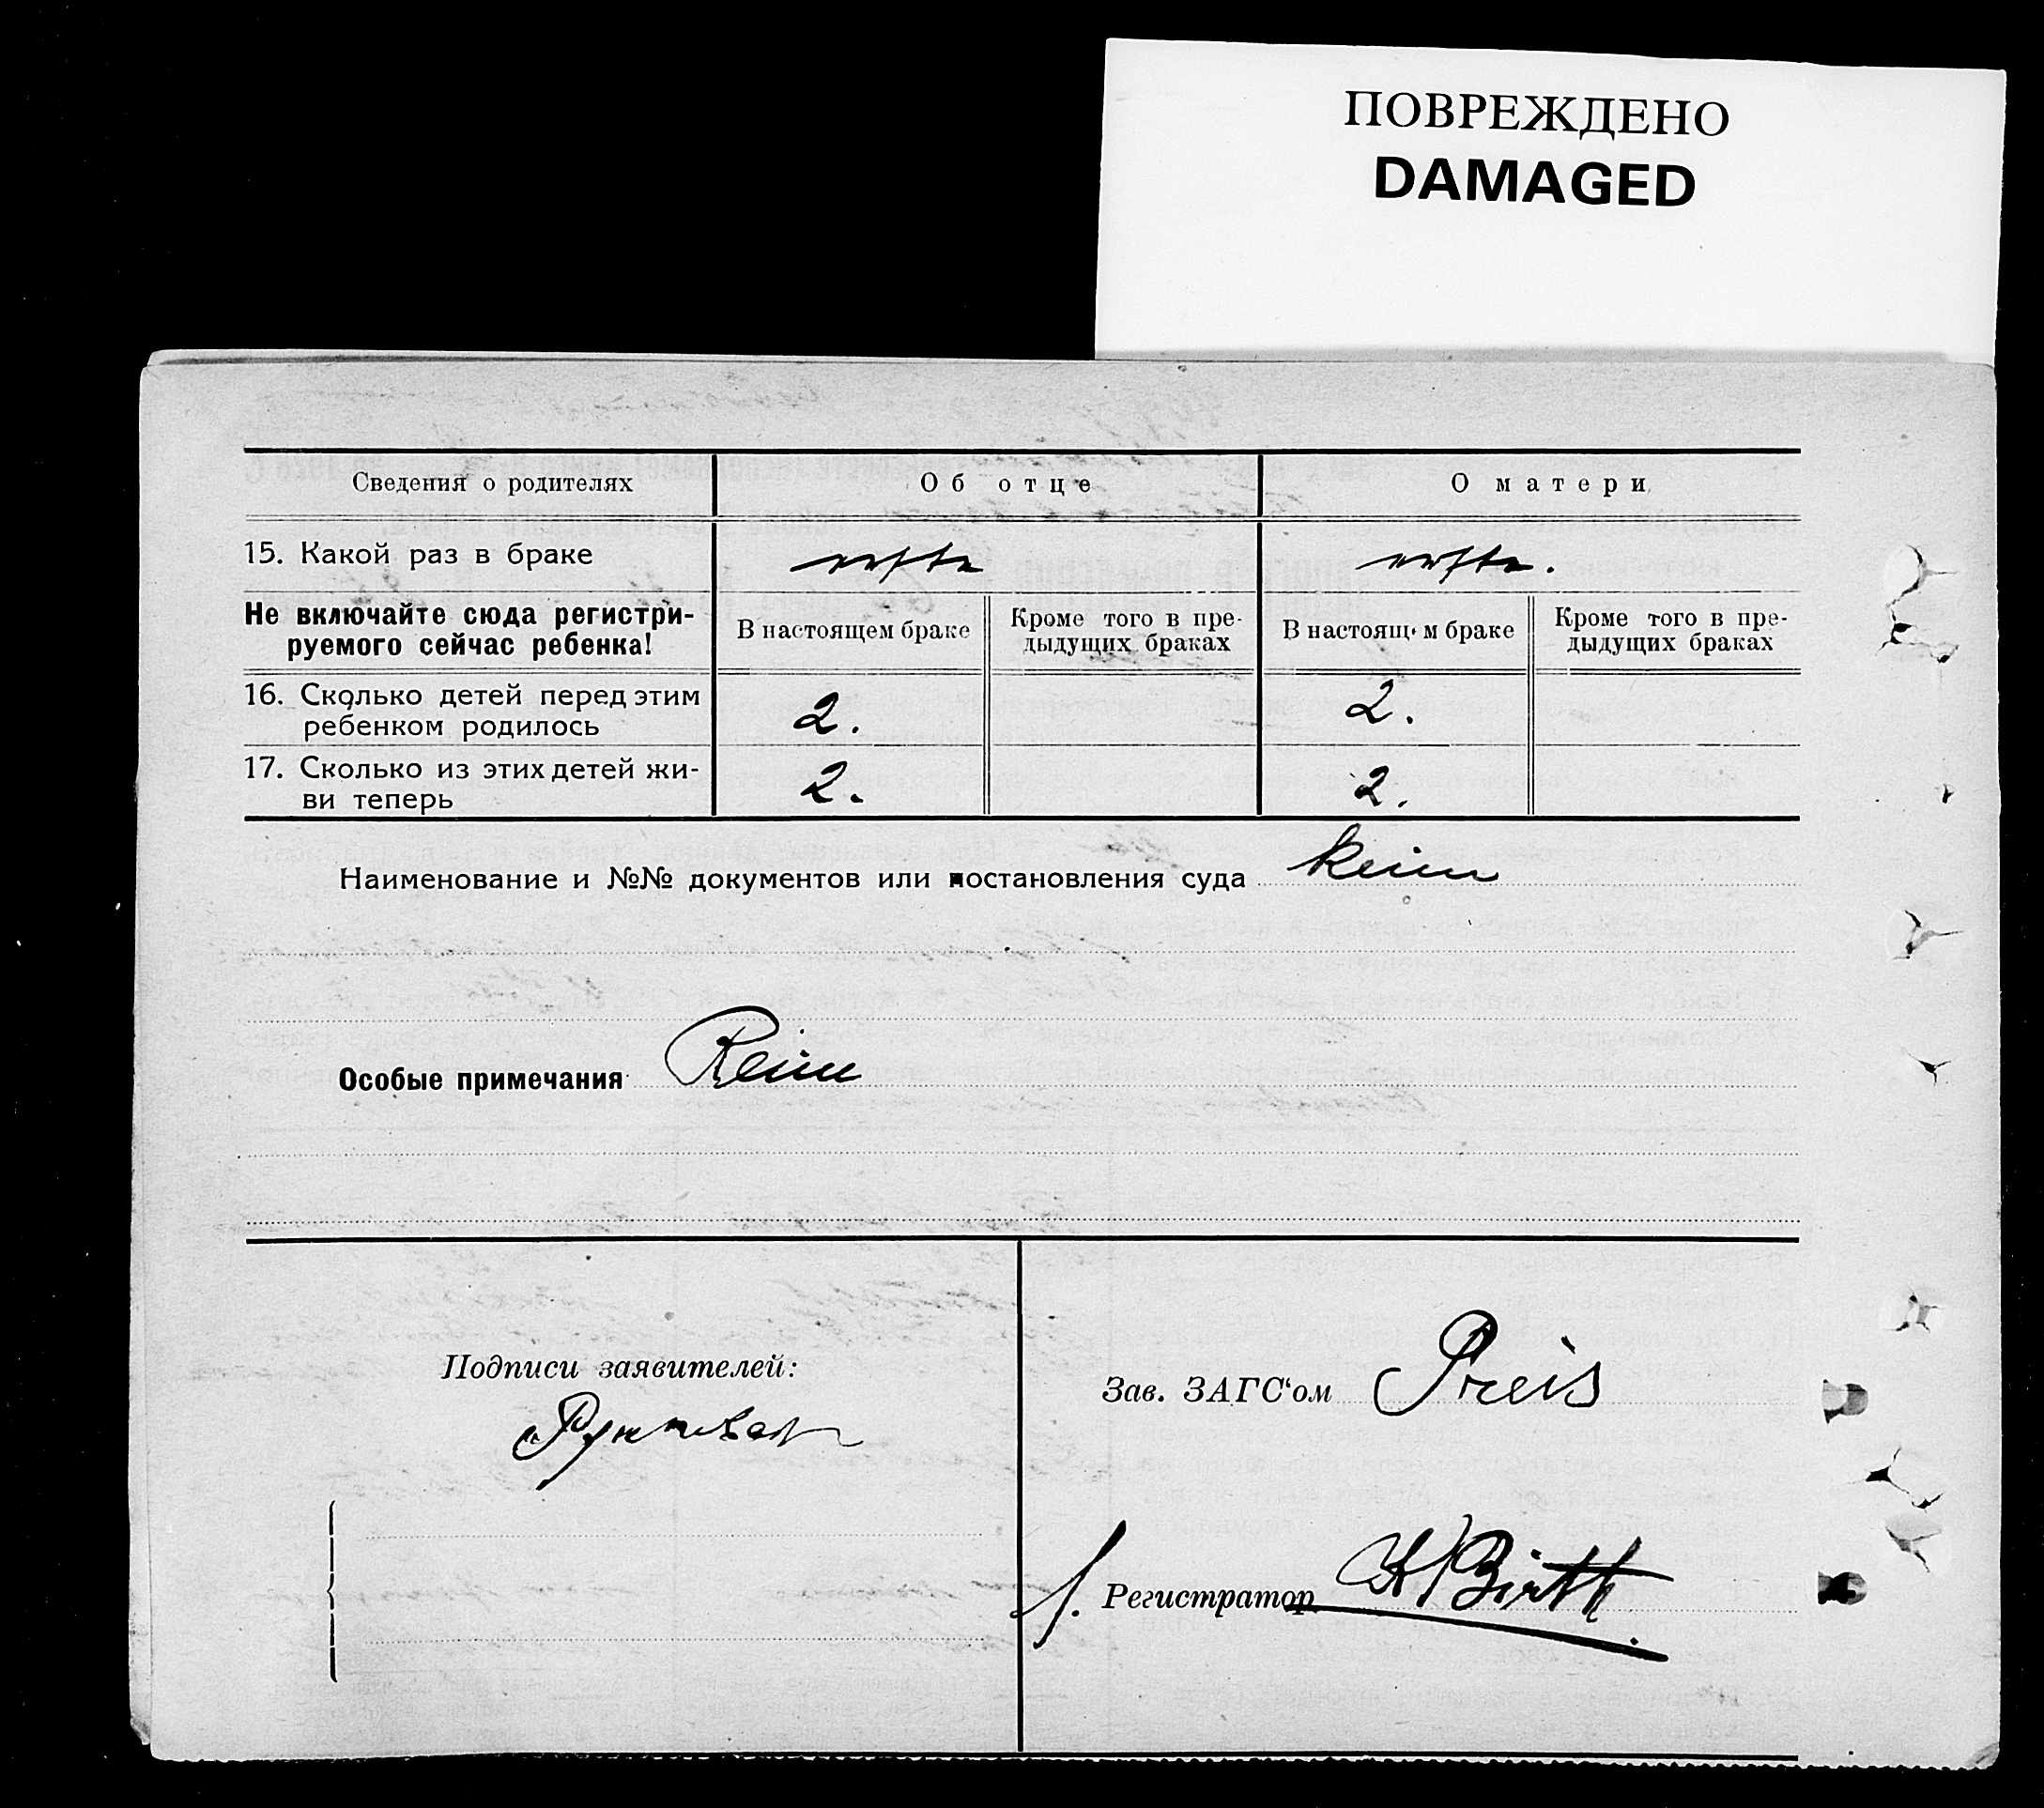 ПОВРЕЖДЕНО
DAMAGED
Сведения о родителях
Об отце
О матери
15. Какой раз в браке
erste
erste.
Не включайте сюда регистри-
руемого сейчас ребенка!
В настоящем браке
Кроме того в пре-
дыдущих браках
В настоящ м браке
Кроме того в пре-
дыдущих браках
16. Сколько детей перед этим
ребенком родилось
2.
2.
17. Сколько из этих детей жи-
ви теперь
2.
2.
Наименование и №№ документов или постановления суда keine
Особые примечания Keine
Подписи заявителей:
Зав. ЗАГС‘ом Preis
Регистратор Birth